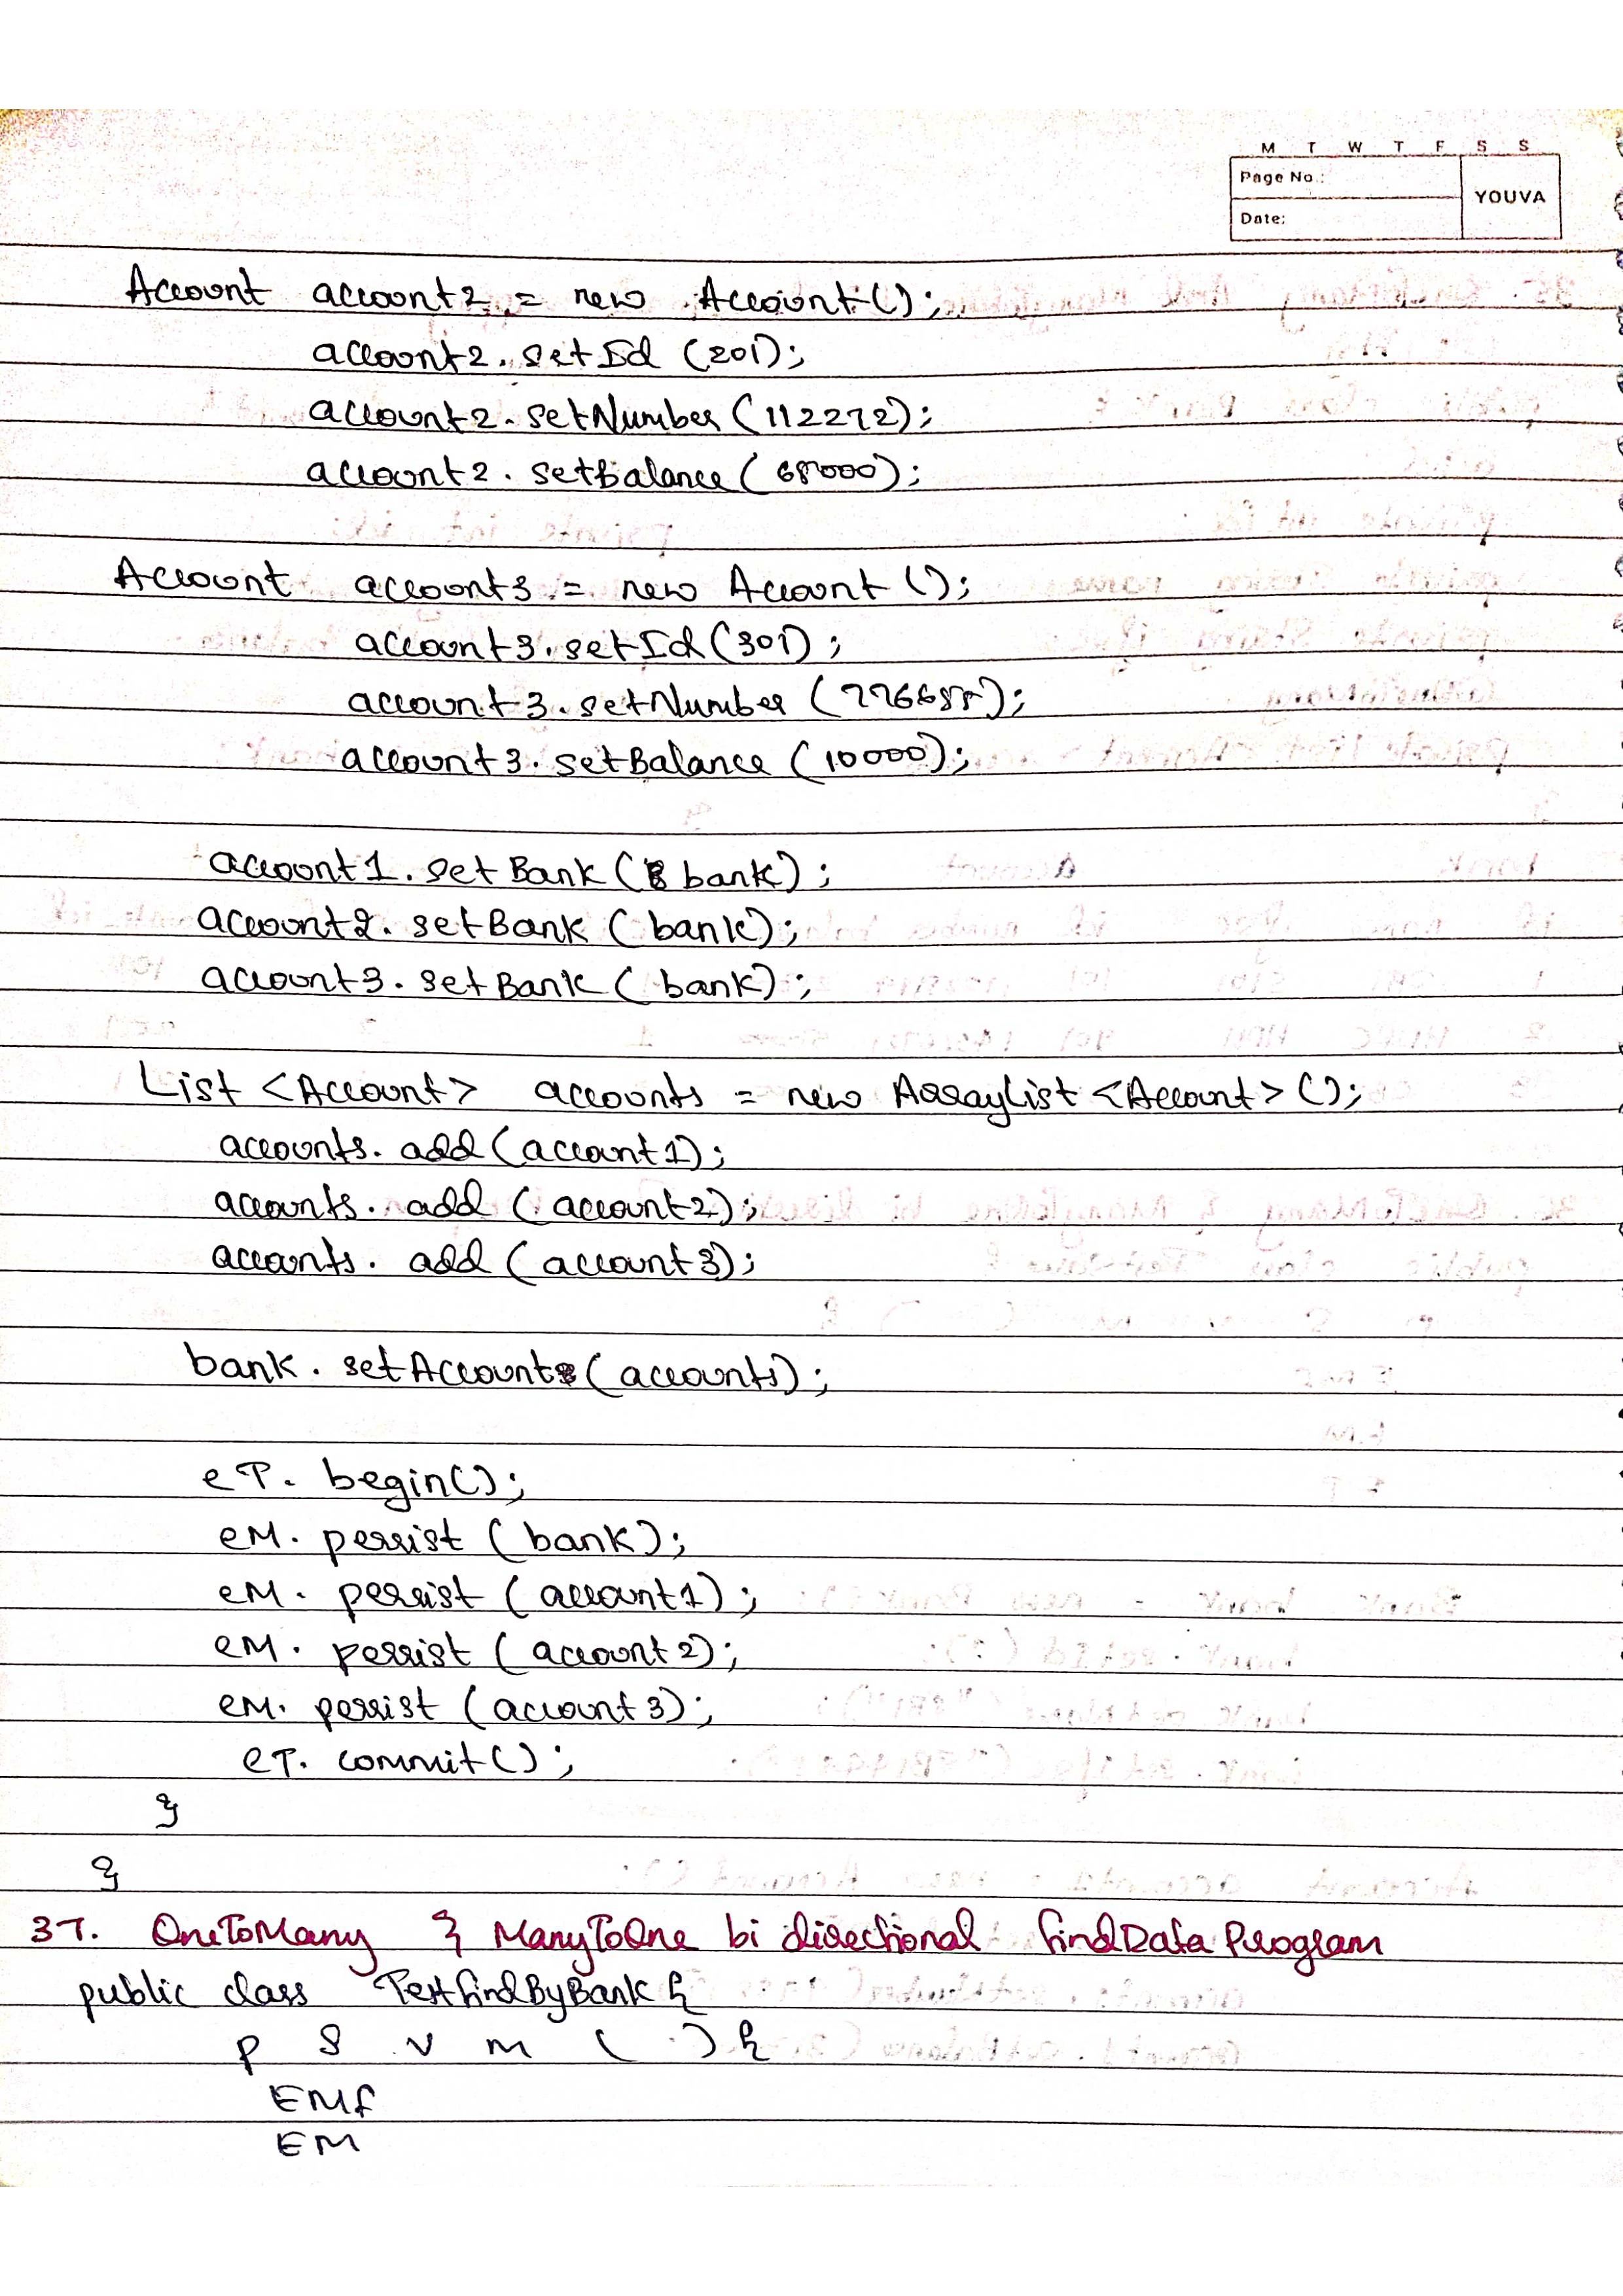 M T W T F S S
Page No.:
YOUVA
Date:
Account account2 = new Account();
account2.setId (201);
account2.setNumber (112272);
account2.setBalance (68000);
Account account3 = new Account ();
account3.setId (301);
account3.setNumber (776688);
account3.setBalance (10000);
account1.setBank (bank);
account2.setBank (bank);
account3.setBank (bank);
List <Account> accounts = new ArrayList <Account> ();
accounts.add (account1);
accounts.add (account2);
accounts.add (account3);
bank.setAccounts (accounts);
eT.begin();
eM.persist (bank);
eM.persist (account1);
eM.persist (account2);
eM.persist (account3);
eT.commit();
}
}
37. OneToMany & ManyToOne bi directional findData Program
public class TestfindByBank {
p s v m ( ) {
EMf
EM